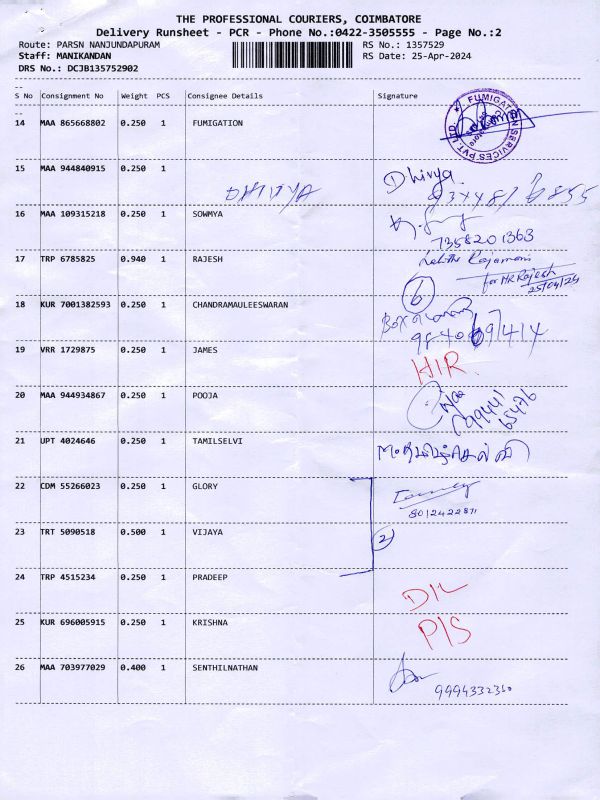 THE PROFESSIONAL COURIERS, COIMBATORE
Delivery Runsheet - PCR - Phone No.:0422-3505555 - Page No.:2
Route: PARSN NANJUNDAPURAM RS No.: 1357529
Staff: MANIKANDAN RS Date: 25-Apr-2024
DRS No.: DCJB135752902
S No Consignment No Weight PCS Consignee Details Signature
14 MAA 865668802 0.250 1 FUMIGATION
FUMIGATION SERVICES PVT. LTD.
15 MAA 944840915 0.250 1
DHIVYA Dhivya
16 MAA 109315218 0.250 1 SOWMYA
7358201363
17 TRP 6785825 0.940 1 RAJESH
Lalitha Rajamani
for MR Rajesh
25/04/24
18 KUR 7001382593 0.250 1 CHANDRAMAULEESWARAN
6
9840697414
19 VRR 1729875 0.250 1 JAMES
H/R.
20 MAA 944934867 0.250 1 POOJA
99441
65476
21 UPT 4024646 0.250 1 TAMILSELVI
22 CDM 55266023 0.250 1 GLORY
8012422871
23 TRT 5090518 0.500 1 VIJAYA
2
24 TRP 4515234 0.250 1 PRADEEP
D/L
25 KUR 696005915 0.250 1 KRISHNA
P/S
26 MAA 703977029 0.400 1 SENTHILNATHAN
9994332310